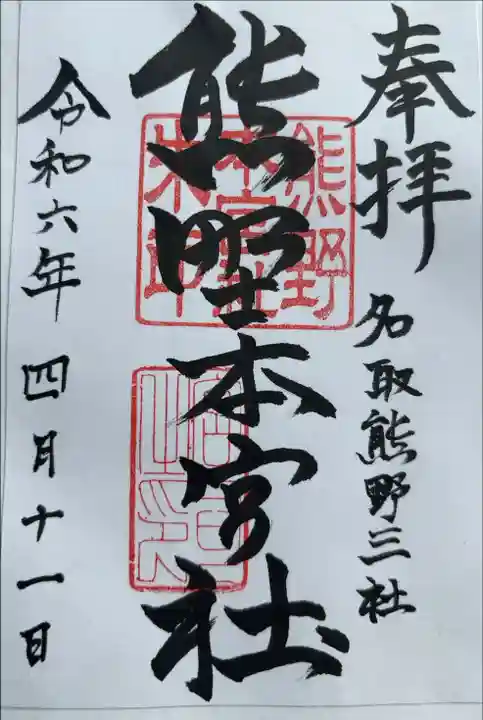 奉拝
名取熊野三社
熊野本宮社
熊野
本宮社
朱印
令和六年 四月十一日